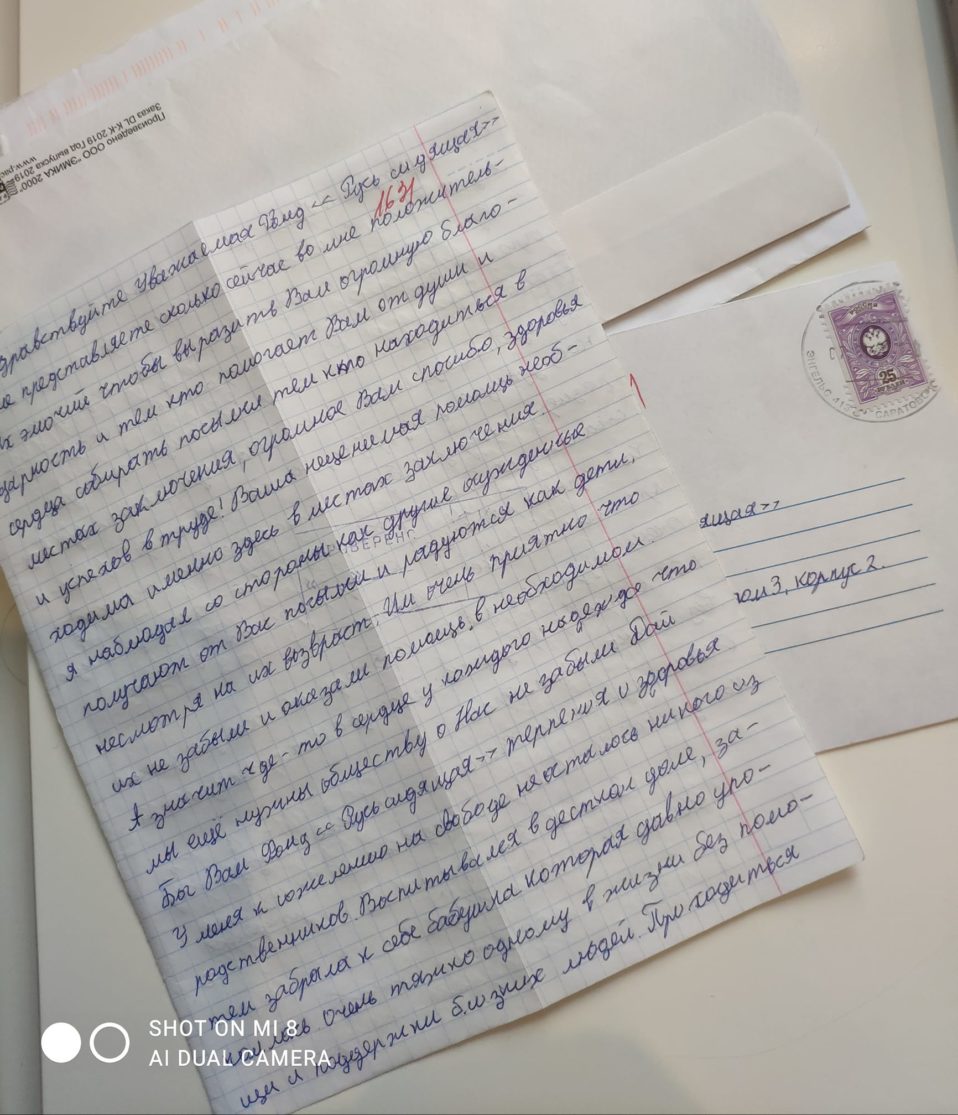 Произведено ООО "ЭМИКА 2000"
Заказ DL К-К 2019 Год выпуска 2019
Здравствуйте Уважаемая Фонд << Русь сидящая>>
1631
не представляете сколько сейчас во мне положитель-
х эмоций чтобы выразить Вам огромную благо-
дарность и тем кто помогает Вам от души и
сердца собирать посылки тем кто находиться в
местах заключения, огромное Вам спасибо, здоровья
и успехов в труде! Ваша неценимая помощь необ-
ходима именно здесь в местах заключения.
я наблюдал со стороны как другие осужденные
получают от Вас посылки и радуются как дети,
несмотря на их возвраст. Им очень приятно что
их не забыли и оказали помощь, в необходимом.
А значит где-то в сердце у каждого надежда что
мы ещё нужны обществу о Нас не забыли Дай
Бог Вам Фонд << Русь сидящая>> терпения и здоровья
У меня к сожелению на свободе неосталось никого из
родственников. Воспитывался в десткам доме, за-
тем забрала к себе бабушка которая давно упо-
коилась очень тяжко одному в жизни без помо-
щи и поддержки близких людей. Проходиться
РОССИЯ
25
ЭНГЕЛЬС
САРАТОВС
ящая>>
ом 3, корпус 2.
SHOT ON MI 8
AI DUAL CAMERA